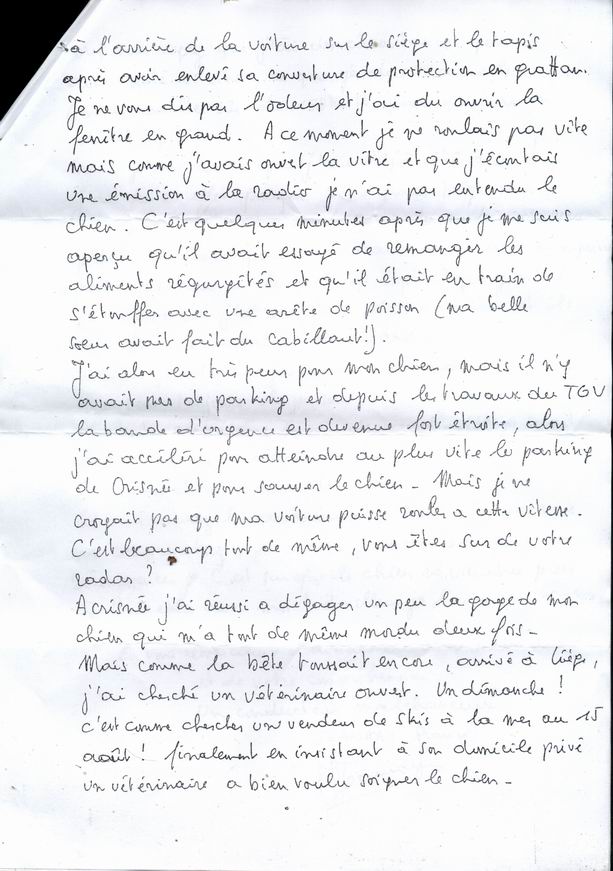 à l'arrière de la voiture sur le siège et le tapis
après avoir enlevé sa couverture de protection en grattan.
Je ne vous dis pas l'odeur et j'ai du ouvrir la
fenêtre en grand. A ce moment je ne roulais pas vite
mais comme j'avais ouvert la vitre et que j'écoutais
une émission à la radio je n'ai pas entendu le
chien. C'est quelques minutes après que je me suis
aperçu qu'il avait essayé de remanger les
aliments régurgités et qu'il était en train de
s'étouffer avec une arête de poisson (ma belle
soeur avait fait du Cabillaud!).
J'ai alors eu très peur pour mon chien, mais il n'y
avait pas de parking et depuis les travaux du TGV
la bande d'urgence est devenue fort étroite, alors
j'ai accéléré pour atteindre au plus vite le parking
de Crisnée et pour sauver le chien - Mais je ne
croyait pas que ma voiture puisse rouler a cette vitesse.
C'est beaucoup tout de même, vous êtes sur de votre
radar ?
A crisnée j'ai réussi a dégager un peu la gorge de mon
chien qui m'a tout de même mordu deux fois -
Mais comme la bête toussait encore, arrivé à Liège,
j'ai cherché un vétérinaire ouvert. Un dimanche !
c'est comme chercher un vendeur de skis à la mer au 15
août ! finalement en insistant à son domicile privé
un vétérinaire a bien voulu soigner le chien -